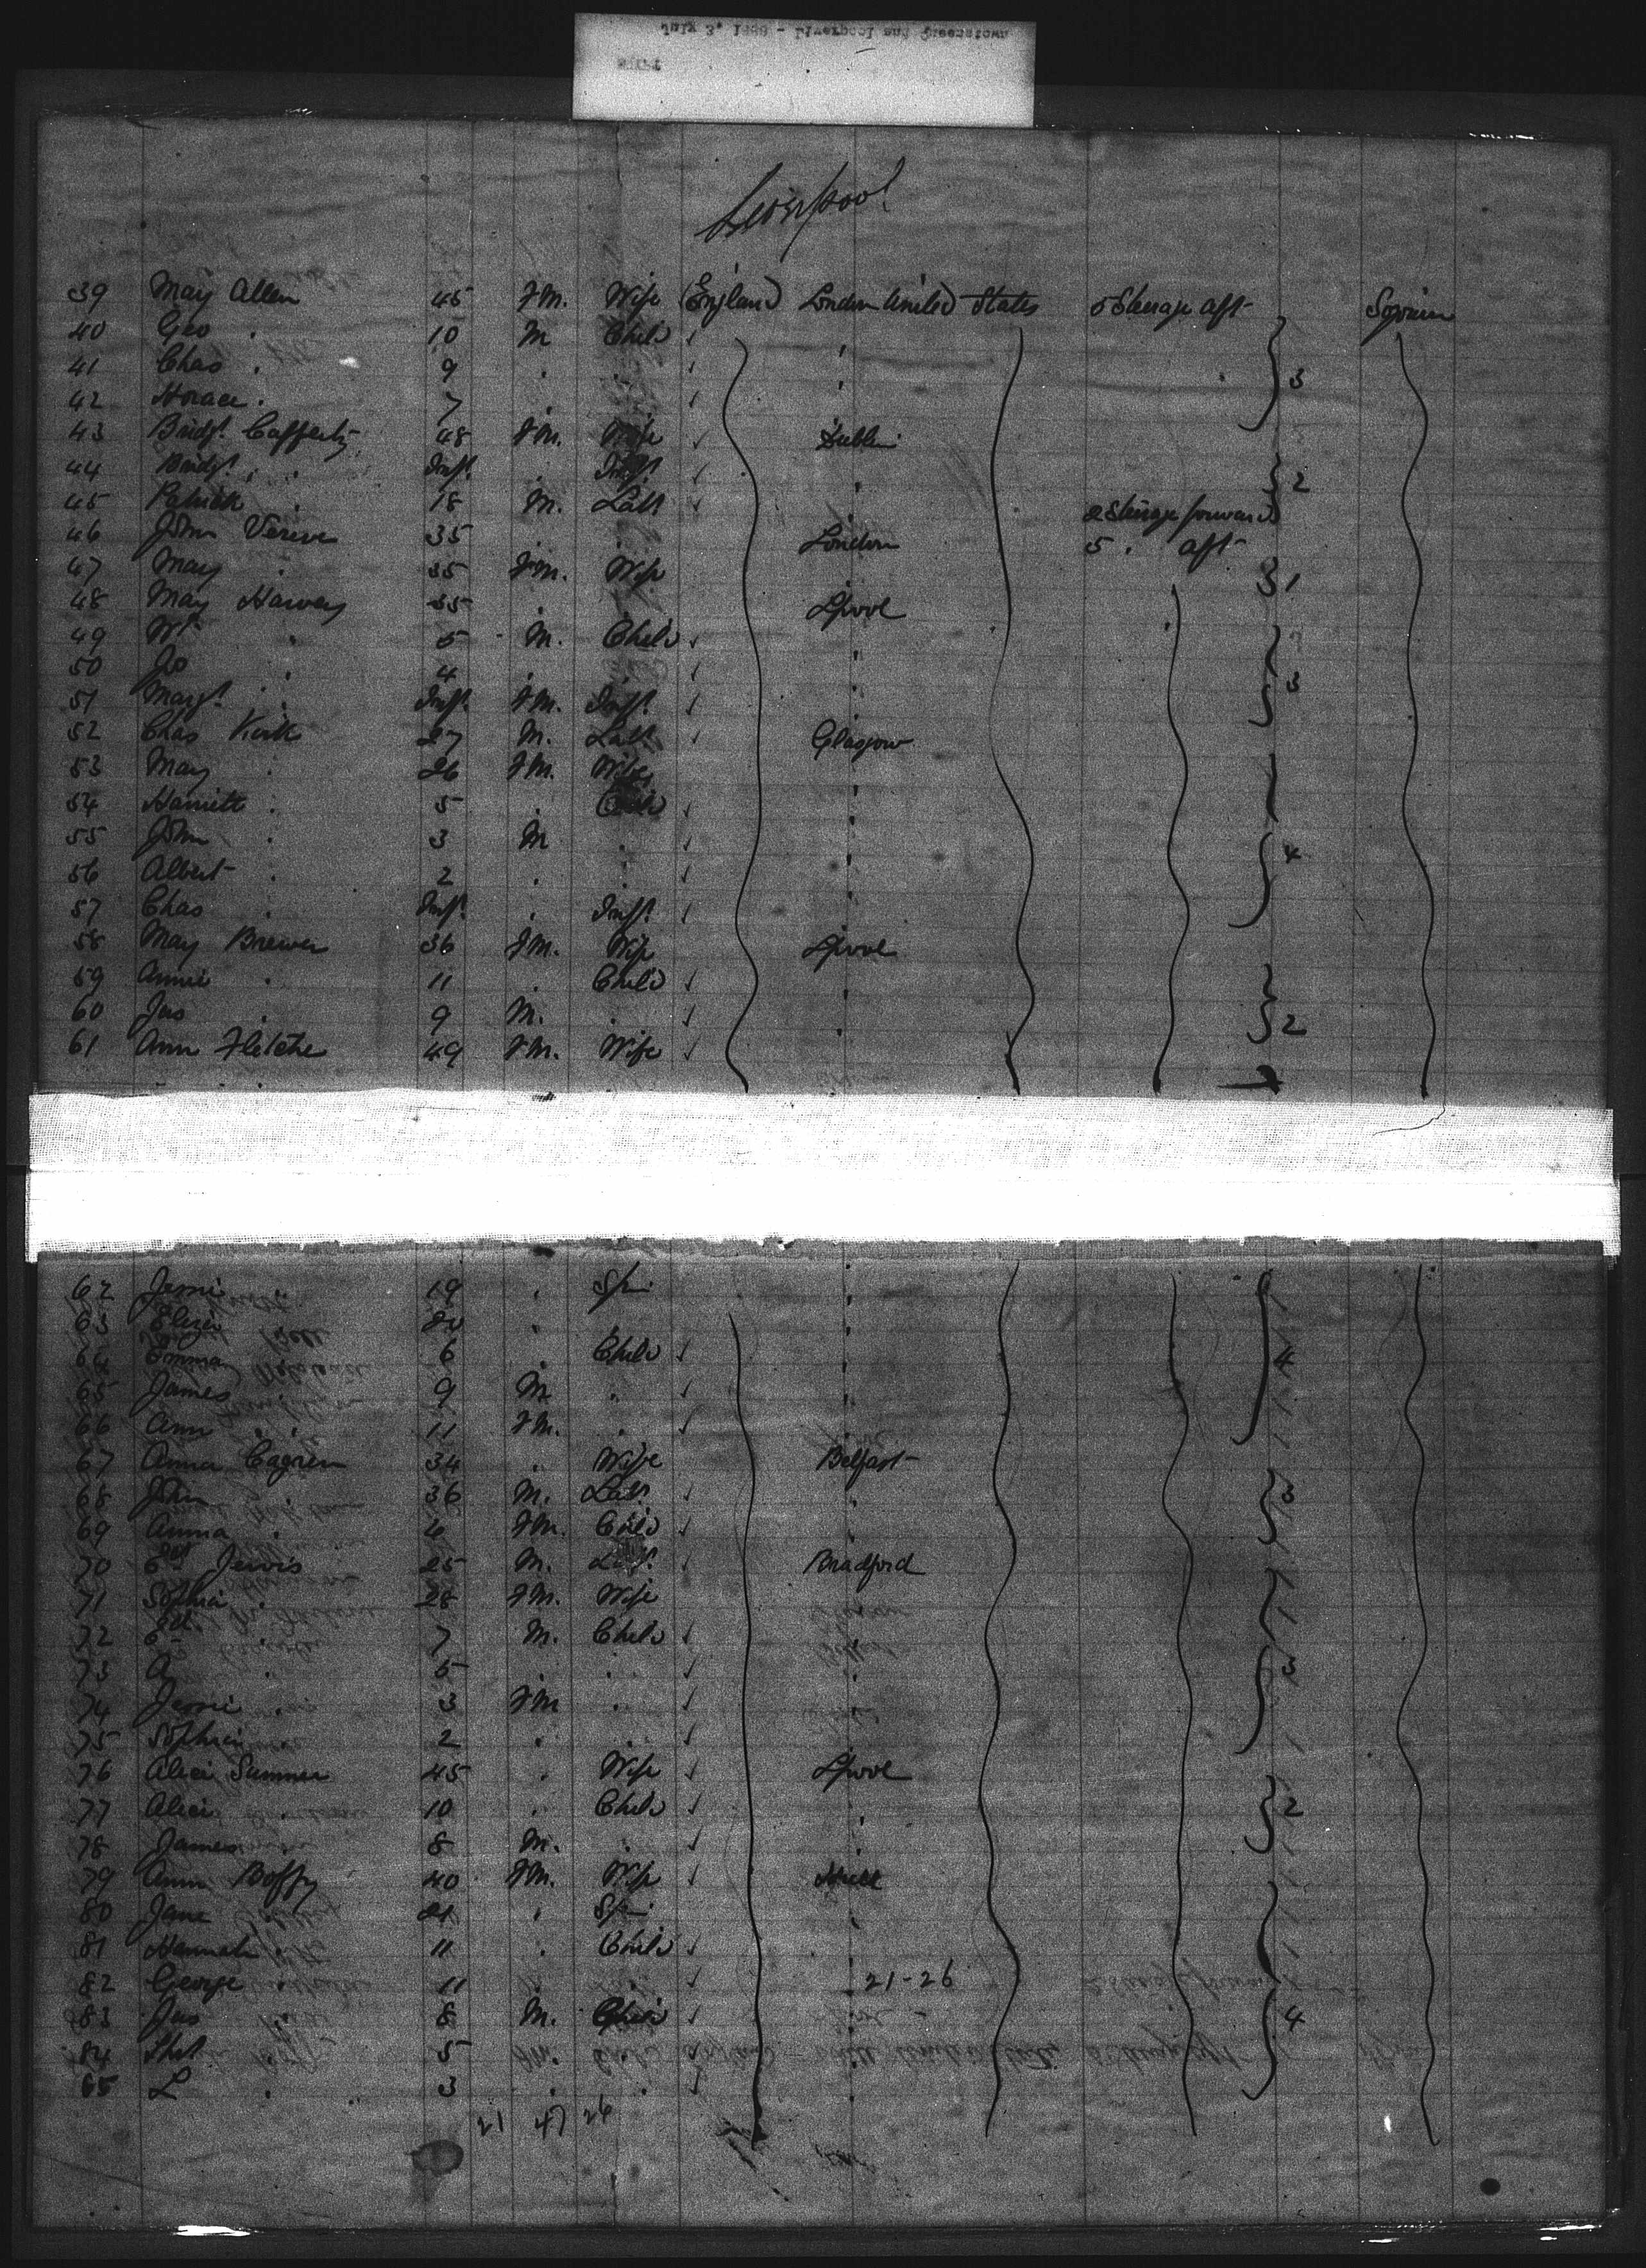 Liverpool
39 Mary Allen 45 Fm. Wife England London United States 5 Steerage Aft Sojourn
40 Geo . 10 M Child
41 Chas . 9 . .
42 Horace . 7 . .
43 Bridgt. Cafferty 48 Fm. Wife Dublin
44 Bridgt. . Inft. . Inft.
45 Patrick . 18 M. Labr 2 Steerage forward
46 John 35 . . London 5 . aft
47 Mary . 35 Fm. Wife
48 Mary Harvey 35 . . Lpool
49 Wm . 5 M. Child
50 Jo . 4 . .
51 Margt. . Inft. Fm. Inft.
52 Chas Kirk 27 M. Labr Glasgow
53 Mary . 26 Fm. Wife
54 Harriett . 5 . Child
55 John . 3 M .
56 Albert . 2 . .
57 Chas . Inft. . Inft.
58 Mary Brewer 36 Fm. Wife Lpool
59 Annie . 11 . Child
60 Jas . 9 M. .
61 Ann Fletcher 49 Fm. Wife
62 Jessie 19 . Spr
63 Eliza 20 .
64 Emma 6 . Child
65 James . 9 M .
66 Ann . 11 Fm. .
67 Anna 34 . Wife Belfast
68 John 36 M. Labr
69 Anna . Fm. Child
70 Ed Jervis 25 M. Labr Bradford
71 Sophia . 28 Fm. Wife
72 Ed . 7 M. Child
73 A . 5 . .
74 Jessie . 3 Fm .
75 Sophia . 2 . .
76 Alice Sumner 45 . Wife Lpool
77 Alice . 10 . Child
78 James . 8 M. .
79 Ann Boffy 40 Fm. Wife Hull
80 Jane 21 . Spr
81 Hannah . 11 . Child
82 George . 11 21-26
83 Jas . 8 M. Child
84 5
85 L . 3 . .
21 47 26